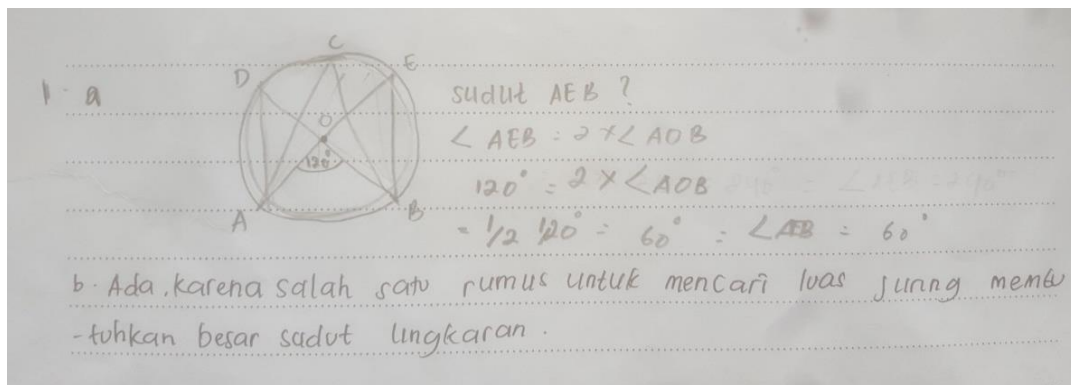 1. a
C
D
E
O
120°
A
B
sudut AEB ?
∠ AEB = 2 × ∠ AOB
120° = 2 × ∠AOB
= 1/2 120° = 60° = ∠AEB = 60°
b. Ada, karena salah satu rumus untuk mencari luas juring membu
-tuhkan besar sudut lingkaran.